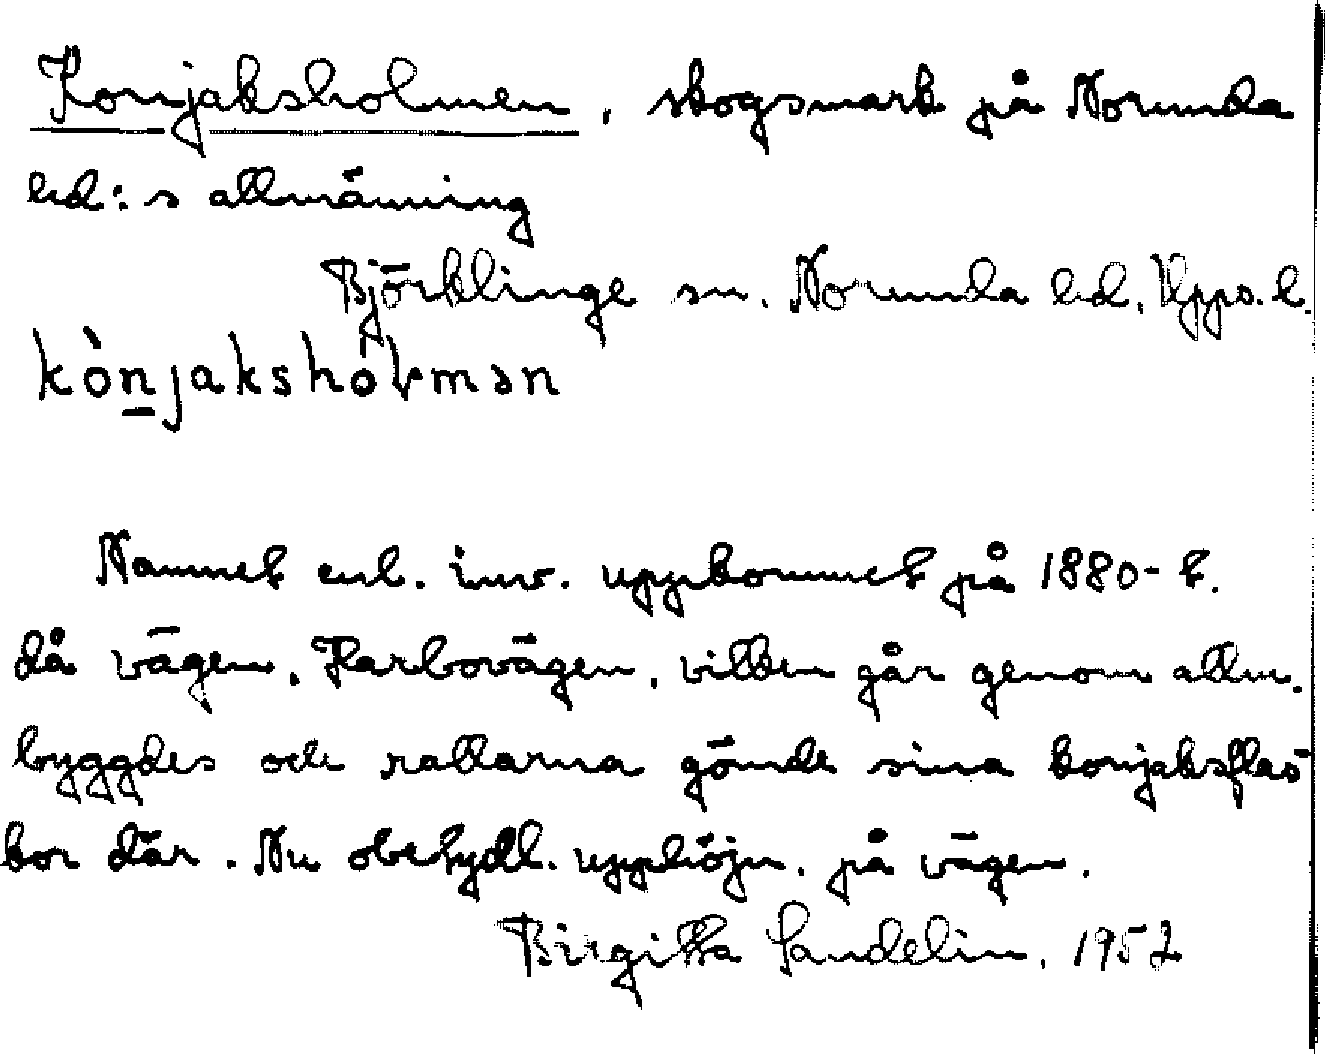 Konjaksholmen, skogsmark på Norunda
hd:s allmänning
Björklinge sn. Norunda hd. Upps. l.
kònjakshòlmən
Namnet enl. inv. uppkommet på 1880-t.
då vägen, Harbovägen, vilken går genom allm.
byggdes och rallarna gömde sina konjaksflas-
kor där. Nu obetydl. upphöjn. på vägen.
Birgitta Sandelin, 1952